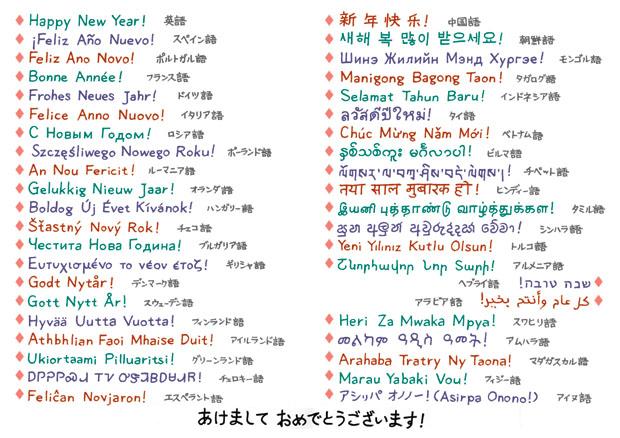 Happy New Year! 英語
¡Feliz Año Nuevo! スペイン語
Feliz Ano Novo! ポルトガル語
Bonne Année! フランス語
Frohes Neues Jahr! ドイツ語
Felice Anno Nuovo! イタリア語
С Новым Годом! ロシア語
Szczęśliwego Nowego Roku! ポーランド語
An Nou Fericit! ルーマニア語
Gelukkig Nieuw Jaar! オランダ語
Boldog Új Évet Kívánok! ハンガリー語
Šťastný Nový Rok! チェコ語
Честита Нова Година! ブルガリア語
Ευτυχισμένο το νέον έτοζ! ギリシャ語
Godt Nytår! デンマーク語
Gott Nytt År! スウェーデン語
Hyvää Uutta Vuotta! フィンランド語
Athbhlian Faoi Mhaise Duit! アイルランド語
Ukiortaami Pilluaritsi! グリーンランド語
チェロキー語
Feliĉan Novjaron! エスペラント語
新年快乐! 中国語
새해 복 많이 받으세요! 朝鮮語
Шинэ Жилийн Мэнд Хүргэе! モンゴル語
Manigong Bagong Taon! タガログ語
Selamat Tahun Baru! インドネシア語
สวัสดีปีใหม่! タイ語
Chúc Mừng Năm Mới! ベトナム語
နှစ်သစ်ကူး မင်္ဂလာပါ! ビルマ語
チベット語
नया साल मुबारक हो! ヒンディー語
இயனி புத்தாண்டு வாழ்த்துக்கள! タミル語
සුභ අළුත් අවුරුද්දක් වේවා! シンハラ語
Yeni Yılınız Kutlu Olsun! トルコ語
Շնորհավոր Նոր Տարի! アルメニア語
שנה טובה! ヘブライ語
كل عام وأنتم بخير! アラビア語
Heri Za Mwaka Mpya! スワヒリ語
መልካም ዓዲስ ዓመት! アムハラ語
Arahaba Tratry Ny Taona! マダガスカル語
Marau Yabaki Vou! フィジー語
アシㇼパ オノノー! (Asirpa Onono!) アイヌ語
あけまして おめでとうございます!